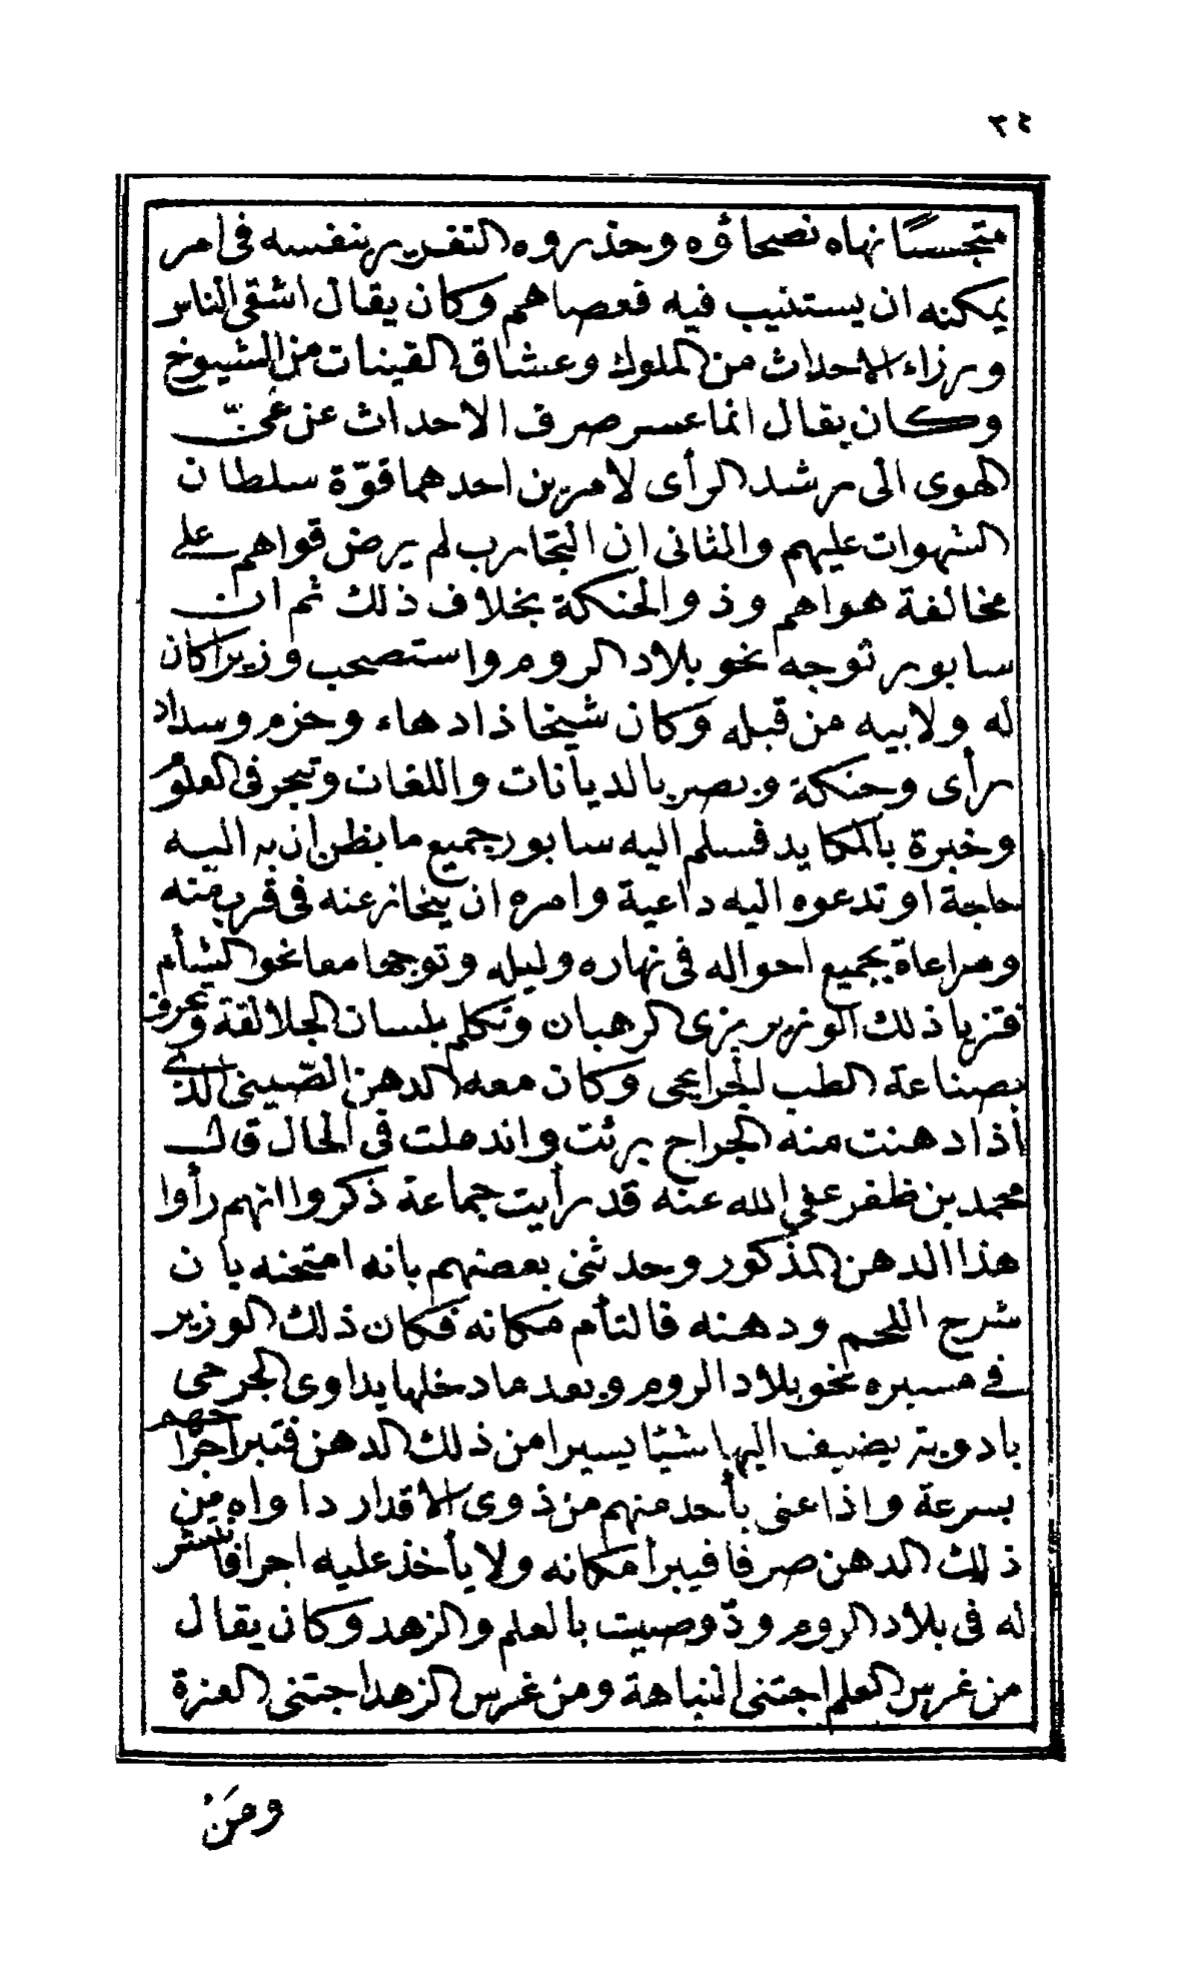 ٣٤
متجسسًا نهاه نصحاؤه وحذروه التغرير بنفسه فى امر
يمكنه ان يستنيب فيه فعصاهم وكان يقال اشقى الناس
وزراء الاحداث من الملوك وعشاق القينات من الشيوخ
وكان يقال انما عسر صرف الاحداث عن غىّ
الهوى الى مرشد الرأى لامرين احدهما قوّة سلطان
الشهوات عليهم والثانى ان التجارب لم يرض قواهم على
مخالفة هواهم وذو الحنكة بخلاف ذلك ثم ان
سابور توجه نحو بلاد الروم واستصحب وزيرا كان
له ولابيه من قبله وكان شيخا ذا دهاء وحزم وسداد
رأى وحنكة وبصر بالديانات واللغات وتبحر فى العلوم
وخبرة بالمكايد فسلم اليه سابور جميع ما يظن ان به اليه
حاجة او تدعوه اليه داعية وامره ان ينحاز عنه فى قرب منه
ومراعاة بجميع احواله فى نهاره وليله وتوجها معا نحو الشأم
فتزيا ذلك الوزير بزى الرهبان وتكلم بلسان الجلالقة وتحرف
بصناعة الطب الجراعى وكان معه الدهن الصّينى الذى
أذا دهنت منه الجراح برئت واندملت فى الحال قال
محمد بن ظفر عفى الله عنه قد رأيت جماعة ذكروا انهم رأوا
هذا الدهن المذكور وحدثنى بعضهم بانه امتحنه بان
شرح اللحم ودهنه فالتأم مكانه فكان ذلك الوزير
فى مسيره نحو بلاد الروم وبعد ما دخلها يداوى الجرحى
بادوية يضيف اليها شيئا يسيرا من ذلك الدهن فتبرأ جراحهم
بسرعة واذا عنى بأحد منهم من ذوى الاقدار داواه من
ذلك الدهن صرفا فيبرأ مكانه ولا يأخذ عليه اجرا فانتشر
له فى بلاد الروم ودّ وصيت بالعلم والزهد وكان يقال
من غرس العلم اجتنى النباهة ومن غرس الزهد اجتنى العزة
ومَنْ